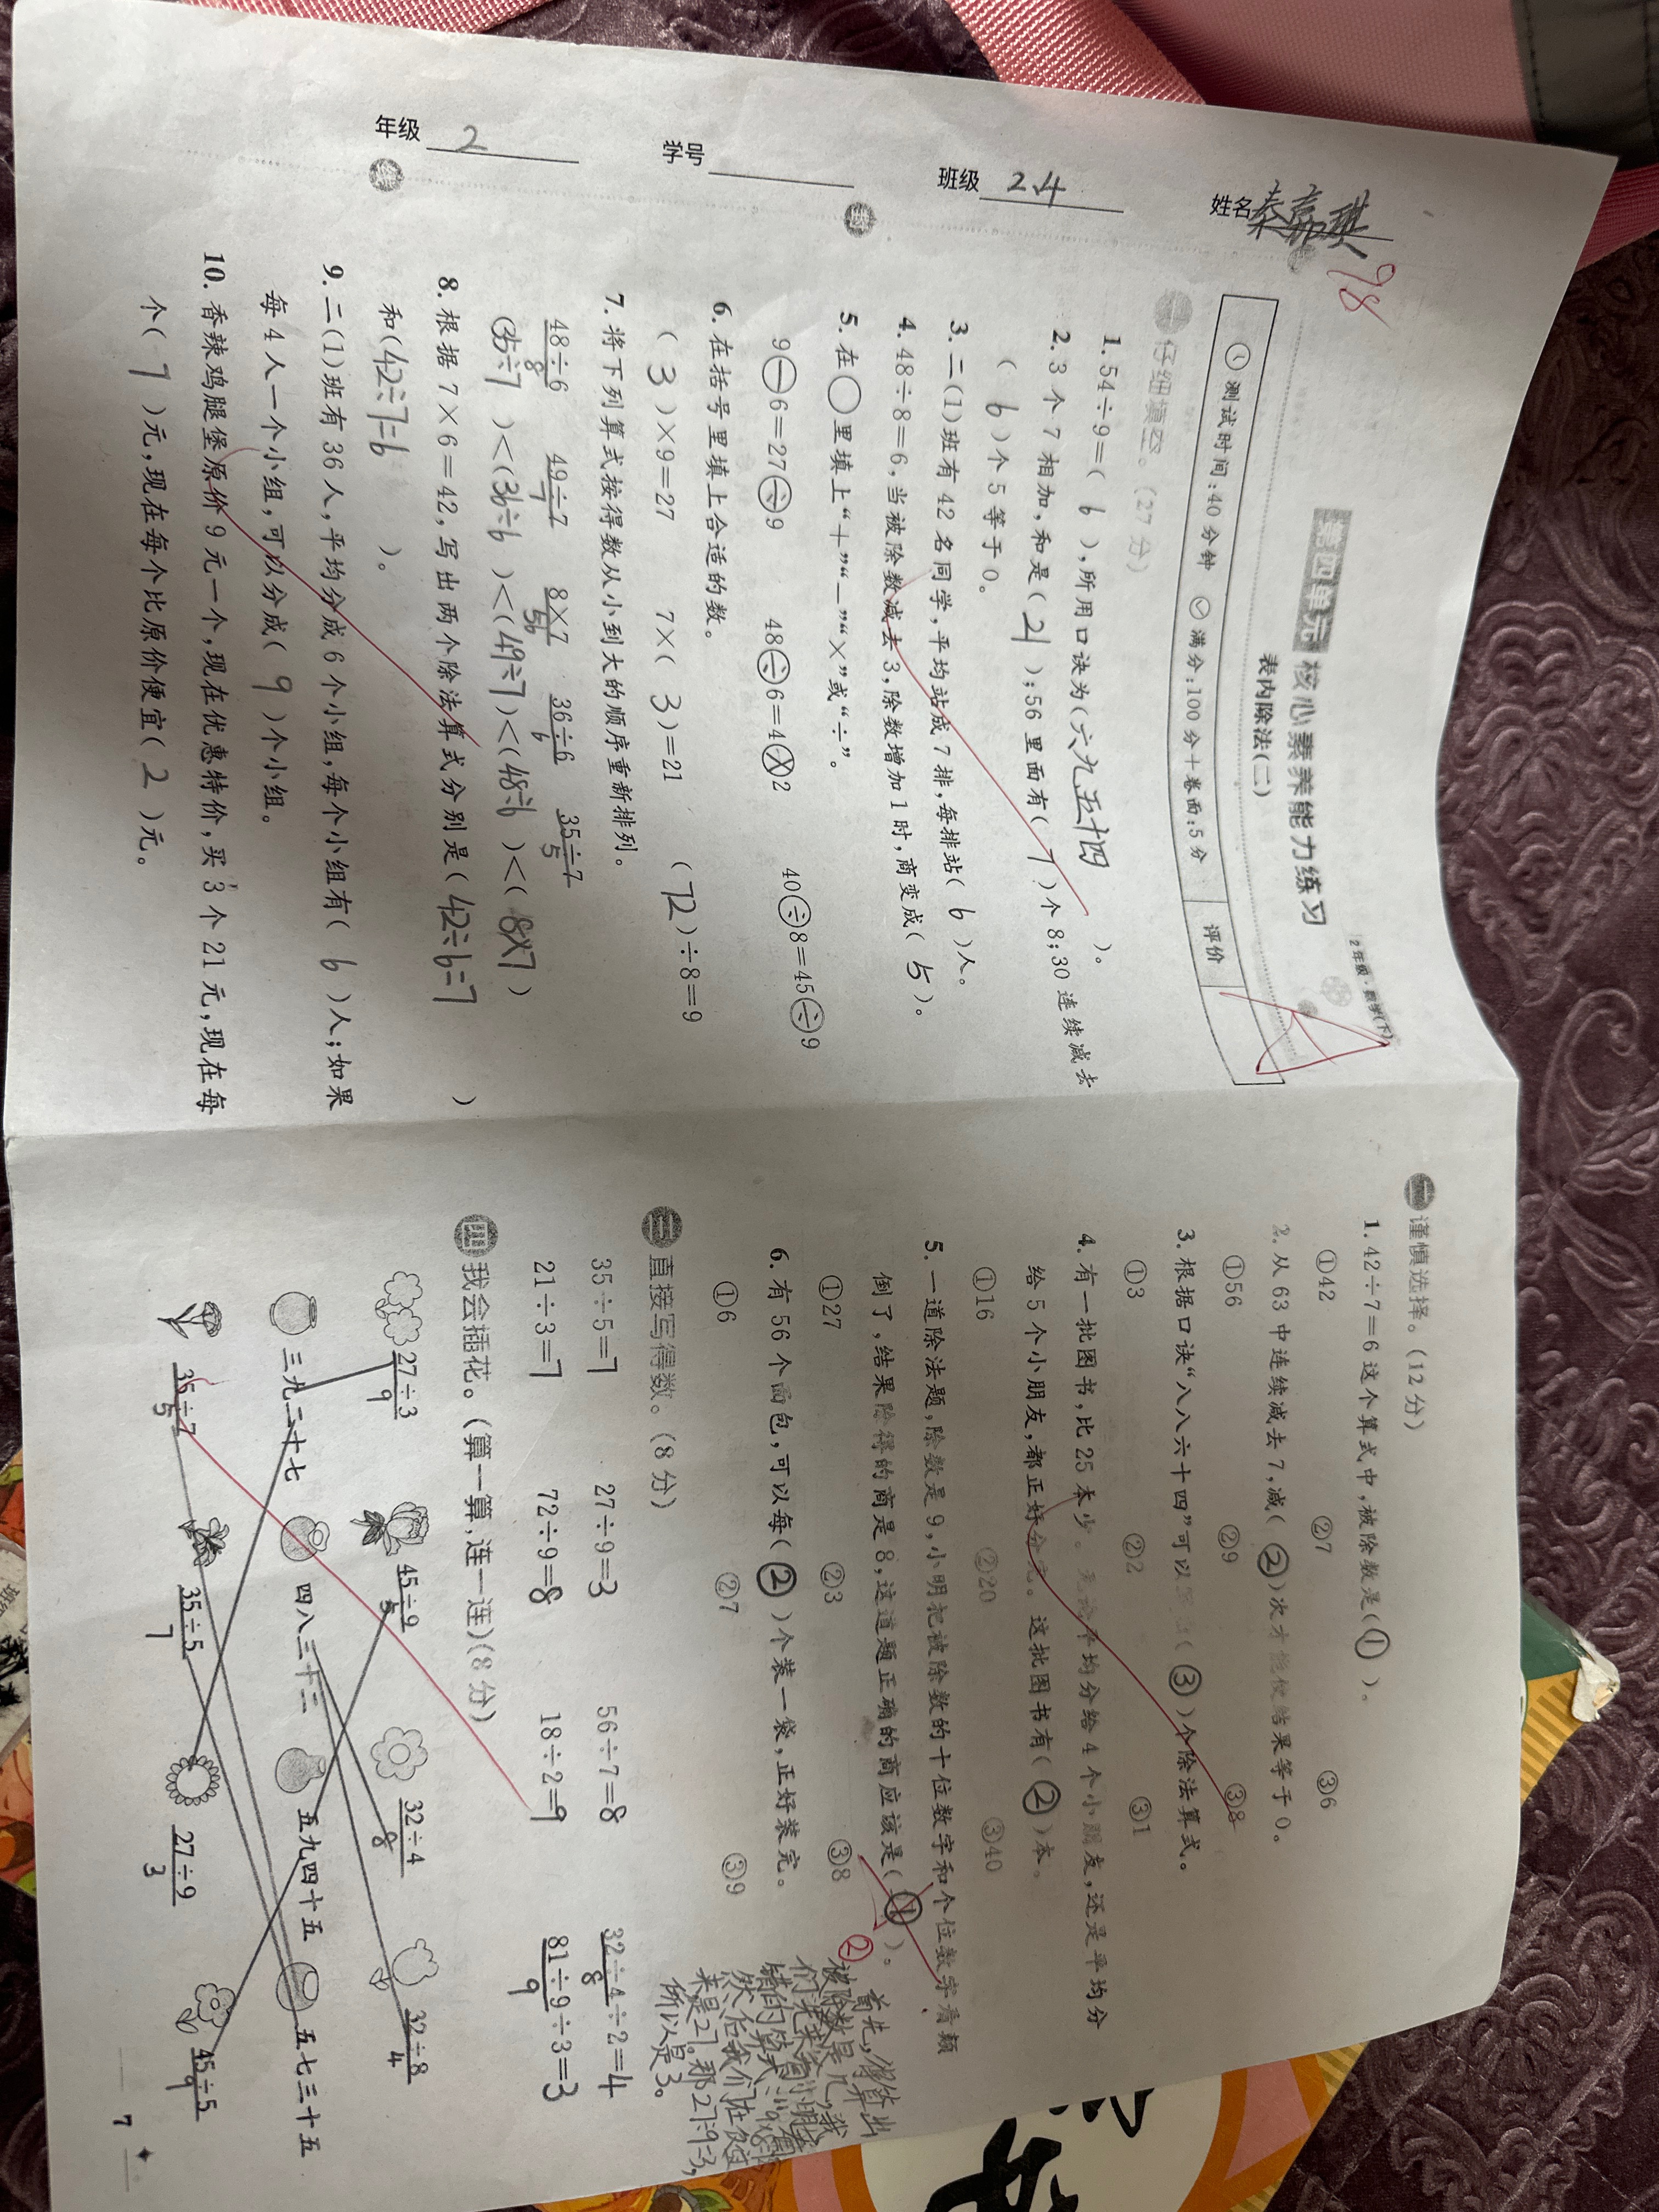 年级 2 学号 班级 2.4 姓名
98
2年级·数学(下)
第四单元 核心素养能力练习
表内除法(二)
测试时间:40分钟 满分:100分+卷面:5分 评价 A
一 仔细填空。(27分)
1. 54÷9=( 6 ),所用口诀为(六九五十四 )。
2. 3个7相加,和是( 21 );56里面有( 7 )个8;30连续减去
( 6 )个5等于0。
3. 二(1)班有42名同学,平均站成7排,每排站( 6 )人。
4. 48÷8=6,当被除数减去3,除数增加1时,商变成( 5 )。
5. 在○里填上“+”“-”“×”或“÷”。
9-6=27÷9 48÷6=4×2 40÷8=45÷9
6. 在括号里填上合适的数。
( 3 )×9=27 7×( 3 )=21 ( 72 )÷8=9
7. 将下列算式按得数从小到大的顺序重新排列。
48÷6 49÷7 8×7 36÷6 35÷7
8 7 56 6 5
(35÷7 )<(36÷6 )<(49÷7)<(48÷6 )<( 8×7 )
8. 根据7×6=42,写出两个除法算式分别是( 42÷6=7 )
和(42÷7=6 )。
9. 二(1)班有36人,平均分成6个小组,每个小组有( 6 )人;如果
每4人一个小组,可以分成( 9 )个小组。
10. 香辣鸡腿堡原价9元一个,现在优惠特价,买3个21元,现在每
个( 7 )元,现在每个比原价便宜( 2 )元。
二 谨慎选择。(12分)
1. 42÷7=6这个算式中,被除数是(① )。
①42 ②7 ③6
2. 从63中连续减去7,减(② )次才能使结果等于0。
①56 ②9 ③8
3. 根据口诀“八八六十四”可以写出(③ )个除法算式。
①3 ②2 ③1
4. 有一批图书,比25本少。无论平均分给4个小朋友,还是平均分
给5个小朋友,都正好分完。这批图书有(② )本。
①16 ②20 ③40
5. 一道除法题,除数是9,小明把被除数的十位数字和个位数字看颠
倒了,结果除得的商是8,这道题正确的商应该是(① )。
②
①27 ②3 ③8
首先,得算出
被除数是几,我
们先来看小明算
错的算式
然后我们在
来是27。那27÷9=3,
所以是3。
6. 有56个面包,可以每(② )个装一袋,正好装完。
①6 ②7 ③9
三 直接写得数。(8分)
35÷5=7 27÷9=3 56÷7=8 32÷4÷2=4
8
21÷3=7 72÷9=8 18÷2=9 81÷9÷3=3
9
四 我会插花。(算一算,连一连)(8分)
27÷3 45÷9 32÷4 32÷8
9 5 8 4
三九二十七 四八三十二 五九四十五 五七三十五
35÷7 35÷5 27÷9 45÷5
5 7 3 9
7